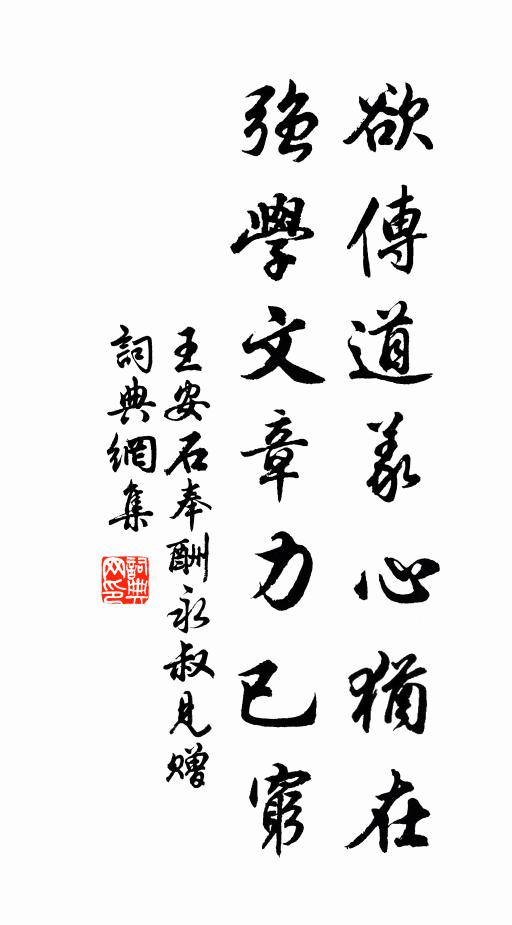 欲傳道義心猶在
強學文章力已窮
王安石奉酬永叔見贈
詞典網集
詞典网印